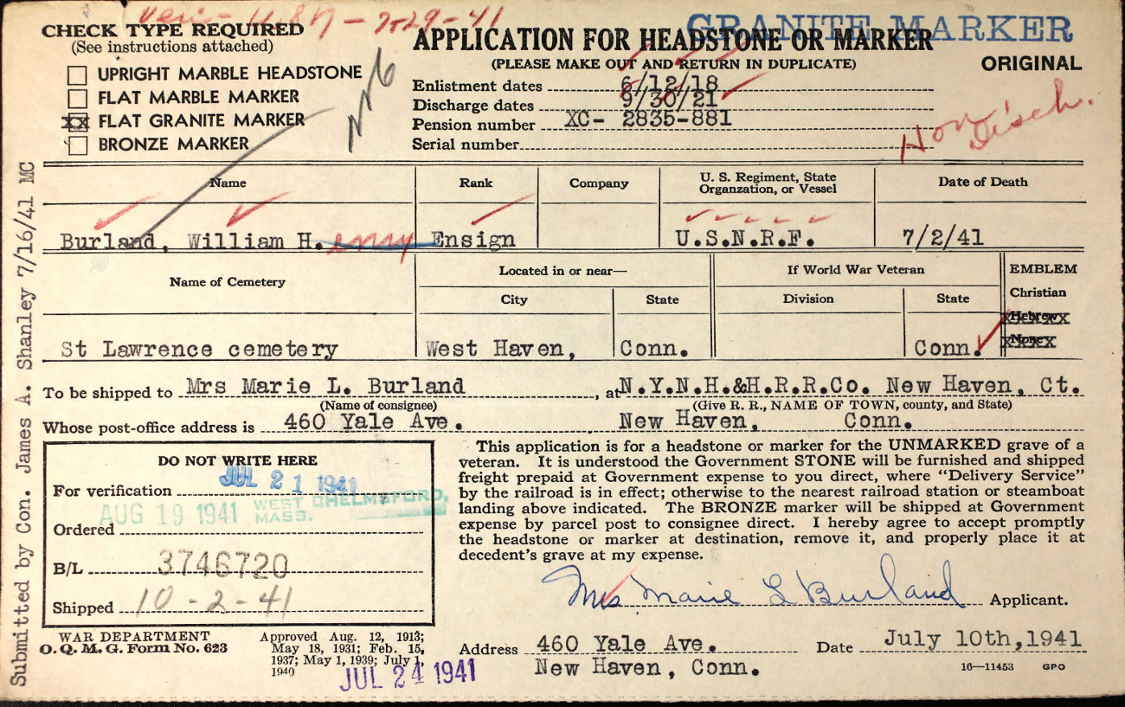 CHECK TYPE REQUIRED
(See instructions attached)
UPRIGHT MARBLE HEADSTONE
FLAT MARBLE MARKER
XX FLAT GRANITE MARKER
BRONZE MARKER
7-29-41
GRANITE MARKER
APPLICATION FOR HEADSTONE OR MARKER
(PLEASE MAKE OUT AND RETURN IN DUPLICATE)
ORIGINAL
Enlistment dates 6/12/18
Discharge dates 9/30/21
Pension number XC- 2835-881
Serial number
Hon Disch.
Name Rank Company U. S. Regiment, State Organzation, or Vessel Date of Death
Burland, William H. enry Ensign U.S.N.R.F. 7/2/41
Name of Cemetery Located in or near— If World War Veteran EMBLEM
City State Division State Christian
Hebrew
None
St Lawrence cemetery West Haven, Conn. Conn.
To be shipped to Mrs Marie L. Burland, at N.Y.N.H.&H.R.R.Co. New Haven, Ct.
(Name of consignee) (Give R. R., NAME OF TOWN, county, and State)
Whose post-office address is 460 Yale Ave. New Haven, Conn.
DO NOT WRITE HERE
JUL 21 1941
For verification
AUG 19 1941 WEST CHELMSFORD, MASS.
Ordered
B/L 3746720
Shipped 10-2-41
This application is for a headstone or marker for the UNMARKED grave of a
veteran. It is understood the Government STONE will be furnished and shipped
freight prepaid at Government expense to you direct, where "Delivery Service"
by the railroad is in effect; otherwise to the nearest railroad station or steamboat
landing above indicated. The BRONZE marker will be shipped at Government
expense by parcel post to consignee direct. I hereby agree to accept promptly
the headstone or marker at destination, remove it, and properly place it at
decedent's grave at my expense.
Mrs Marie L Burland Applicant.
WAR DEPARTMENT
O. Q. M. G. Form No. 623
Approved Aug. 12, 1913;
May 18, 1931; Feb. 15,
1937; May 1, 1939; July 1,
1940
JUL 24 1941
Address 460 Yale Ave. Date July 10th, 1941
New Haven, Conn.
16—11453 GPO
Submitted by Con. James A. Shanley 7/16/41 MC